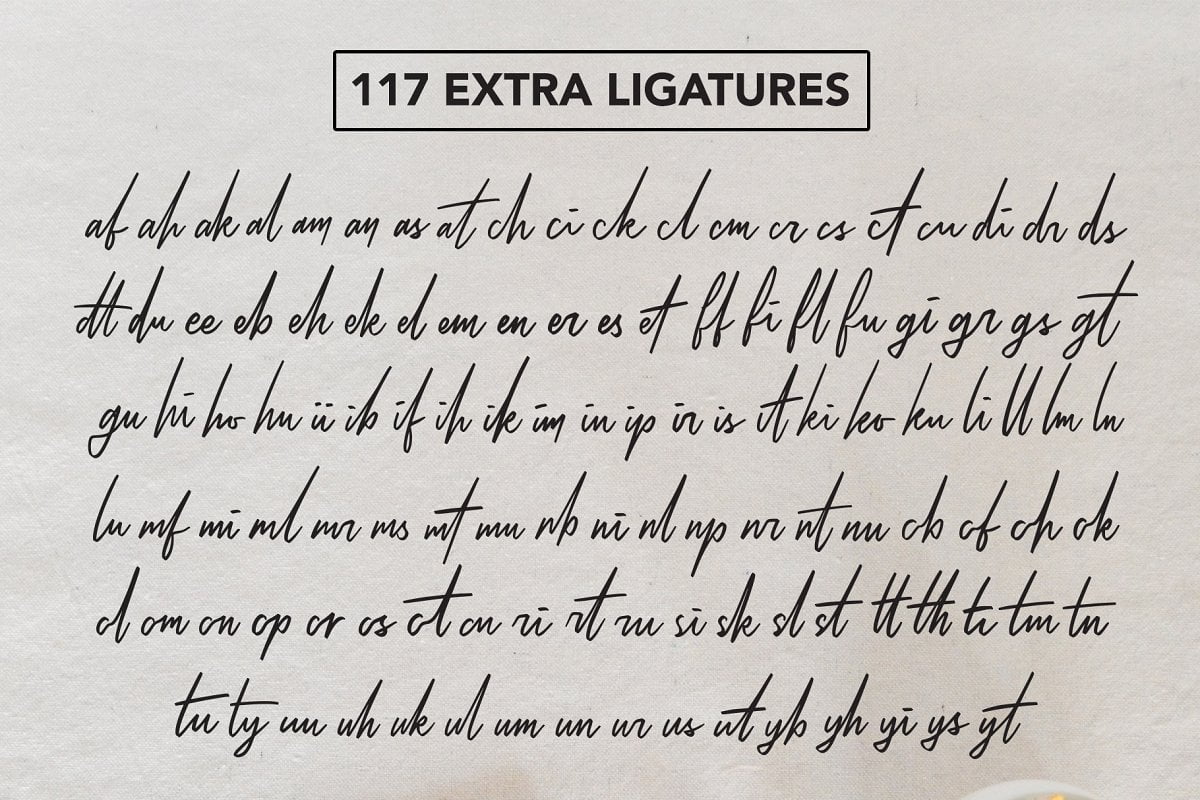 117 EXTRA LIGATURES
af ah ak al am an as at ch ci ck cl cm cr cs ct cu di dr ds
dt du ee eb eh ek el em en er es et ff fi fl fu gi gr gs gt
gu hi ho hu ii ib if ih ik im in ip ir is it ki ko ku li ll lm ln
lu mf mi ml mr ms mt mu nb ni nl np nr nt nu ob of oh ok
ol om on op or os ot ou ri rt ru si sk sl st tt th ti tm tn
tu ty uu uh uk ul um un ur us ut yb yh yi ys yt